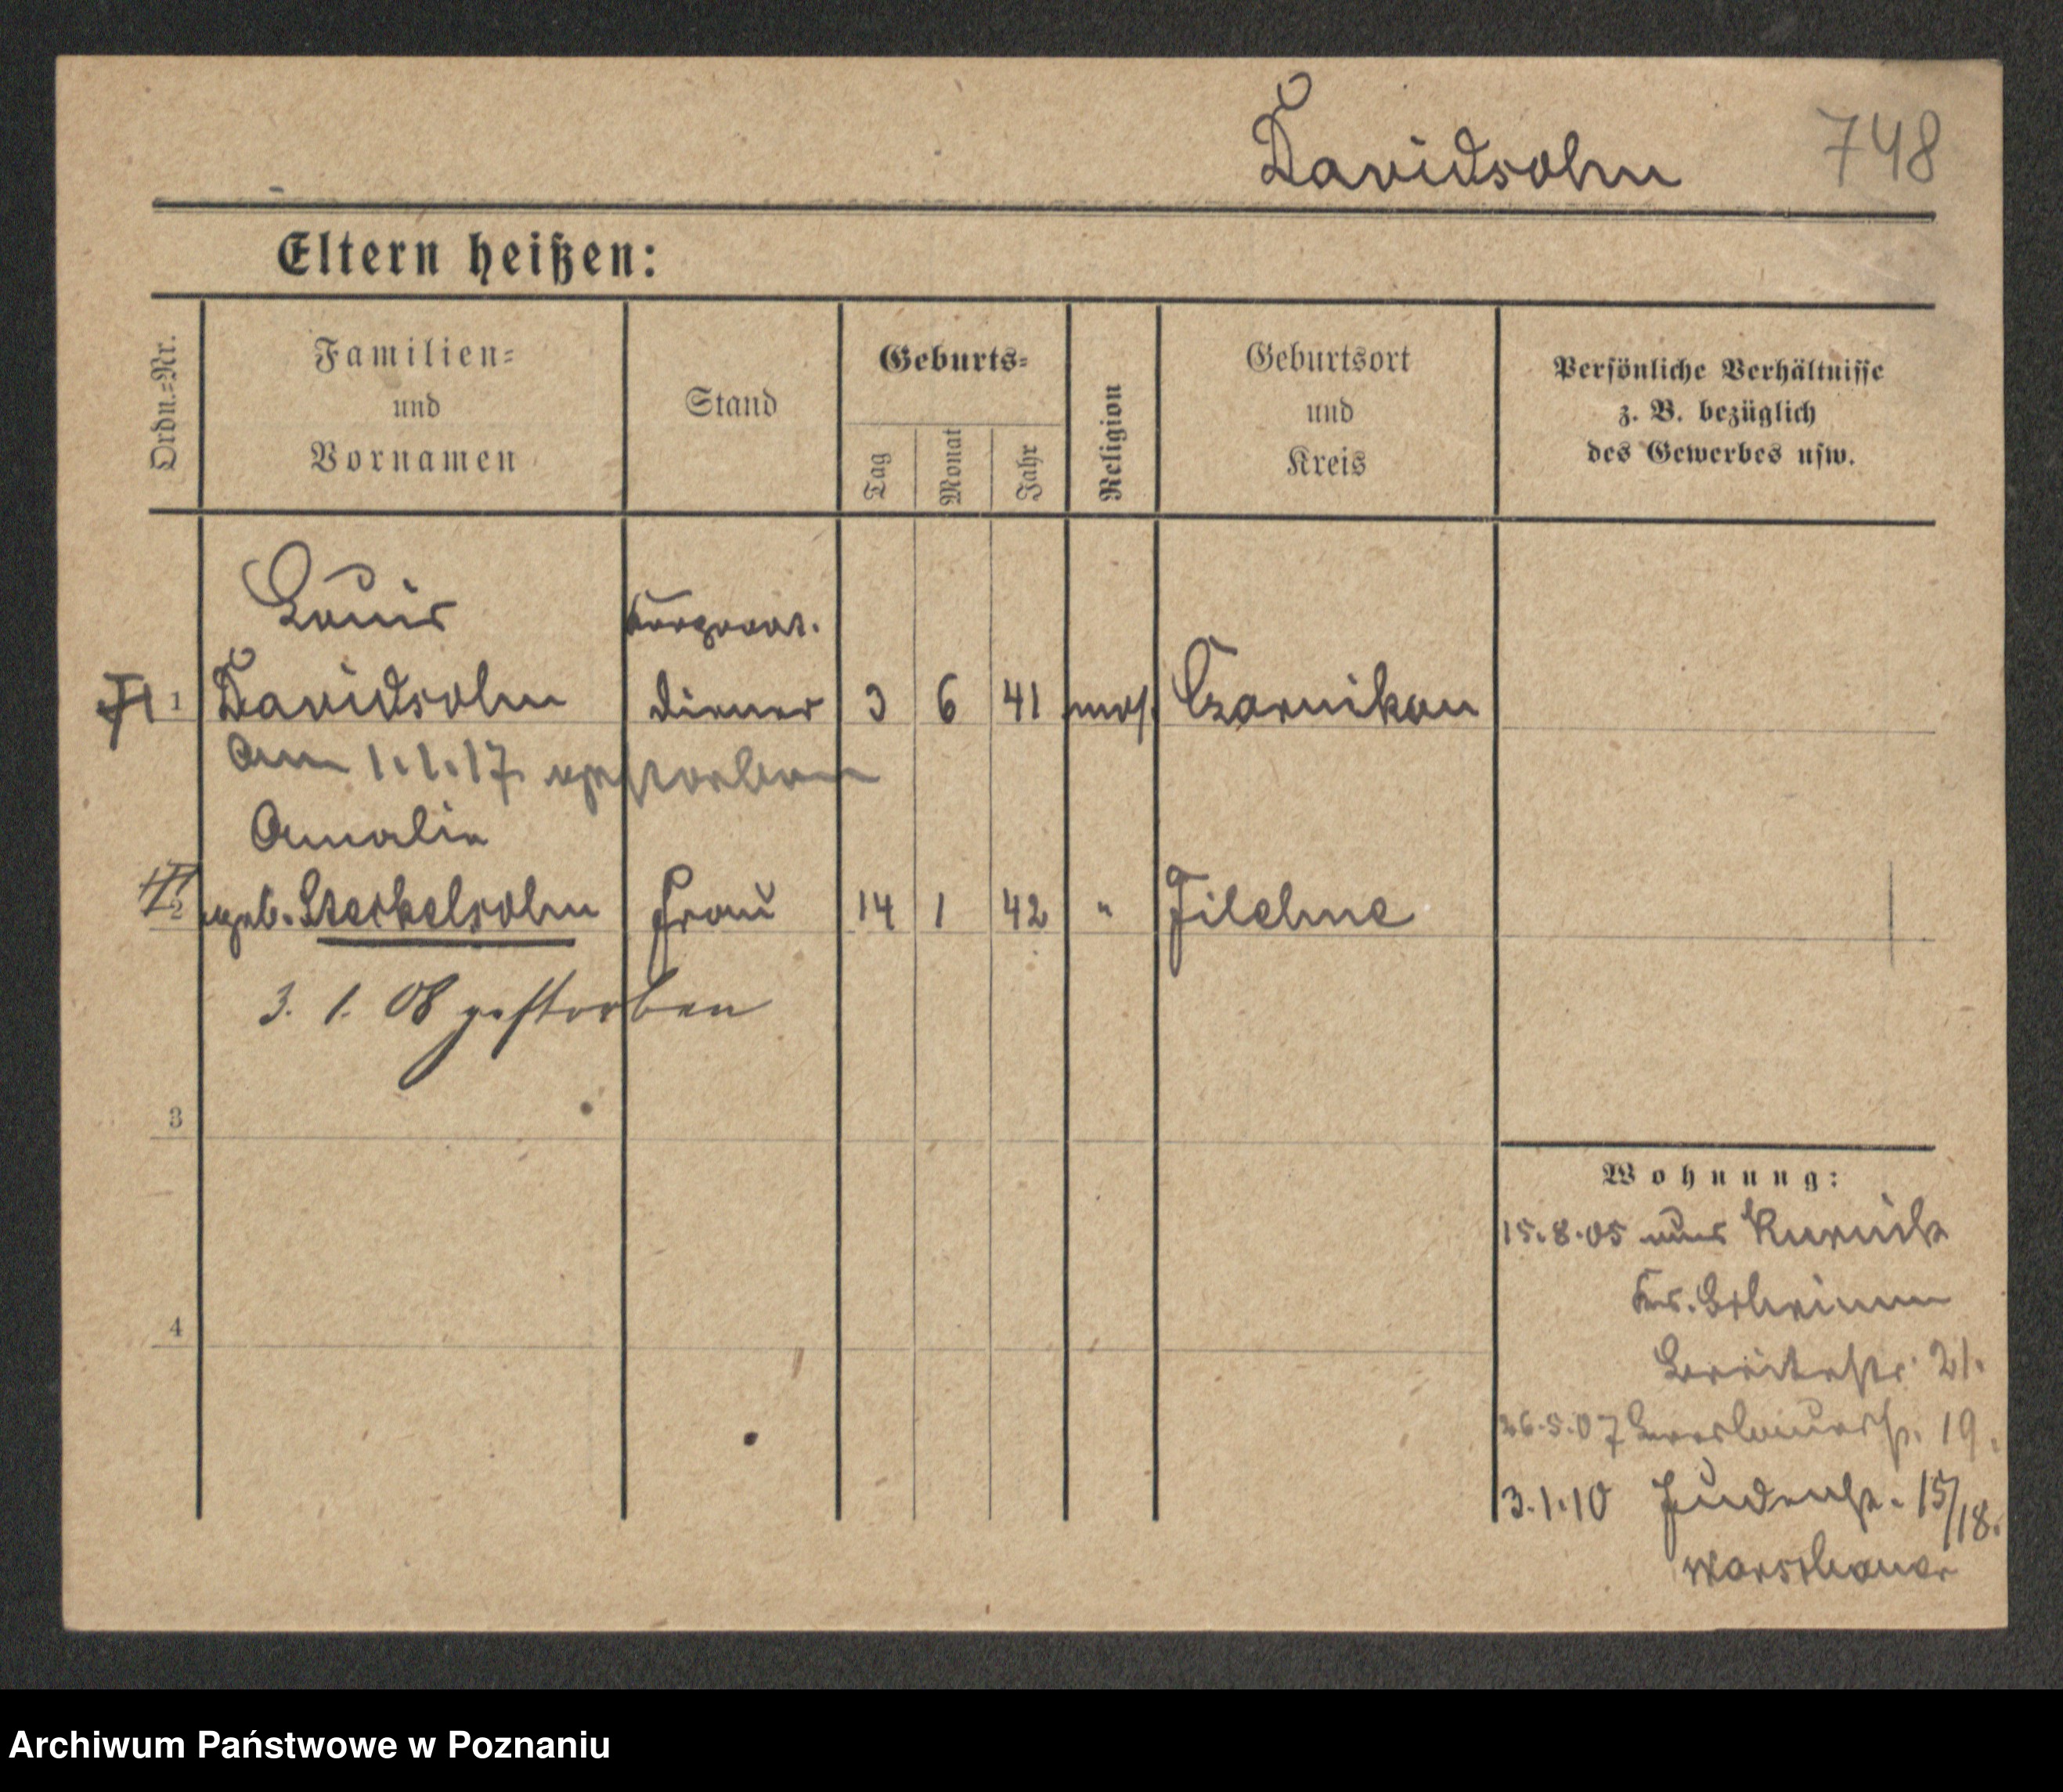 Davidsohn 748
Eltern heißen:
Ordn.=Nr.
Familien=
und
Vornamen
Stand
Geburts=
Tag
Monat
Jahr
Religion
Geburtsort
und
Kreis
Persönliche Verhältnisse
z. B. bezüglich
des Gewerbes usw.
Louis
1 Davidsohn diener 3 6 41 mos. Czarnikau
Am 1.1.17. gestorben
Amalie
2 geb. Steckelsohn Frau 14 1 42 " Filehne
3. 1. 08 gestorben
3
4
Wohnung:
15.8.05 aus Kurnik
Krs. Schrimm
Breitestr. 21.
26.5.07 19.
3.1.10 Judenstr. 15/18.
Warschauer
Archiwum Państwowe w Poznaniu